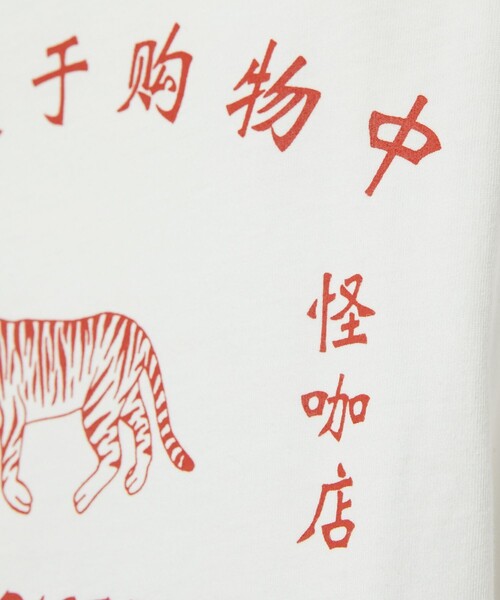 于购物中
怪咖店